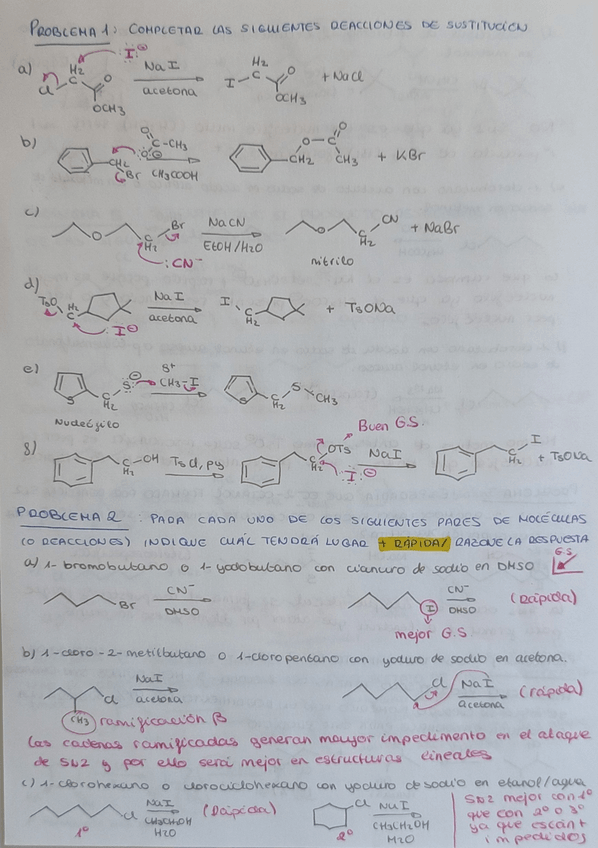 PROBLEMA 1: COMPLETAR LAS SIGUIENTES REACCIONES DE SUSTITUCIÓN
a) Cl H₂ C O OCH₃ :I:⊖ NaI acetona I H₂ C O OCH₃ + NaCl
b) CH₂ Br O C-CH₃ :O:⊖ CH₃COOH O CH₂ C O CH₃ + KBr
c) O C H₂ Br :CN⁻ NaCN EtOH/H₂O O C H₂ CN + NaBr
nitrilo
d) TsO C H₂ :I:⊖ NaI acetona I C H₂ + TsONa
e) S C H₂ S:⊖ δ⁺ CH₃-I S C H₂ S CH₃
Nucleófilo
Buen G.S.
g) C H₂ OH TsCl, py C H₂ OTs :I:⊖ NaI C H₂ I + TsONa
PROBLEMA 2: PADA CADA UNO DE LOS SIGUIENTES PARES DE MOLÉCULAS
(O REACCIONES) INDIQUE CUÁL TENDRÁ LUGAR + RÁPIDA/ RAZONE LA RESPUESTA
a) 1-bromobutano o 1-yodobutano con cianuro de sodio en DMSO G.S
Br CN⁻ DMSO I CN⁻ DMSO (Rápida)
mejor G.S
b) 1-cloro-2-metilbutano o 1-cloropentano con yoduro de sodio en acetona.
Cl NaI acetona Cl NaI acetona (rápida)
CH₃ ramificación β
Las cadenas ramificadas generan mauyor impedimento en el ataque
de SN2 y por ello será mejor en estructuras lineales
c) 1-clorohexano o clorociclohexano con yoduro de sodio en etanol/agua
Cl 1º NaI CH₃CH₂OH H₂O (Rápida) Cl 2º NaI CH₃CH₂OH H₂O
SN2 mejor con 1º
que con 2º o 3º
ya que están +
impedidos